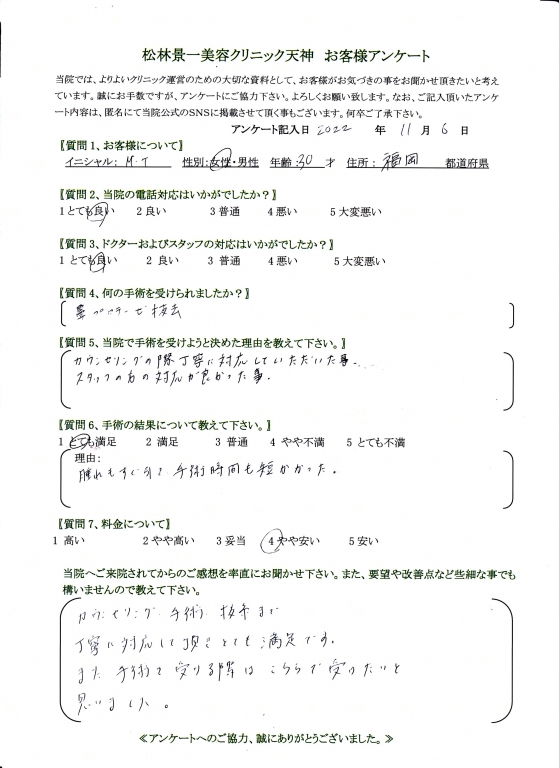 松林景一美容クリニック天神 お客様アンケート
当院では、よりよいクリニック運営のための大切な資料として、お客様がお気づきの事をお聞かせ頂きたいと考え
ています。誠にお手数ですが、アンケートにご協力下さい。よろしくお願い致します。なお、ご記入頂いたアンケ
ート内容は、匿名にて当院公式のSNSに掲載させて頂く事もございます。何卒ご了承下さい。
アンケート記入日 2022 年 11 月 6 日
〖質問 1、お客様について〗
イニシャル: M.T 性別:女性・男性 年齢:30 才 住所: 福岡 都道府県
〖質問 2、当院の電話対応はいかがでしたか?〗
1 とても良い 2 良い 3 普通 4 悪い 5 大変悪い
〖質問 3、ドクターおよびスタッフの対応はいかがでしたか?〗
1 とても良い 2 良い 3 普通 4 悪い 5 大変悪い
〖質問 4、何の手術を受けられましたか?〗
鼻プロテーゼ抜去
〖質問 5、当院で手術を受けようと決めた理由を教えて下さい。〗
カウンセリングの際丁寧に対応していただいた事。
スタッフの方の対応が良かった事。
〖質問 6、手術の結果について教えて下さい。〗
1 とても満足 2 満足 3 普通 4 やや不満 5 とても不満
理由:
腫れもすぐ引き、手術時間も短かかった。
〖質問 7、料金について〗
1 高い 2 やや高い 3 妥当 4 やや安い 5 安い
当院へご来院されてからのご感想を率直にお聞かせ下さい。また、要望や改善点など些細な事でも
構いませんので教えて下さい。
カウンセリング、手術、抜糸まで
丁寧に対応して頂きとても満足です。
また手術を受ける際はこちらで受けたいと
思いました。
≪アンケートへのご協力、誠にありがとうございました。≫